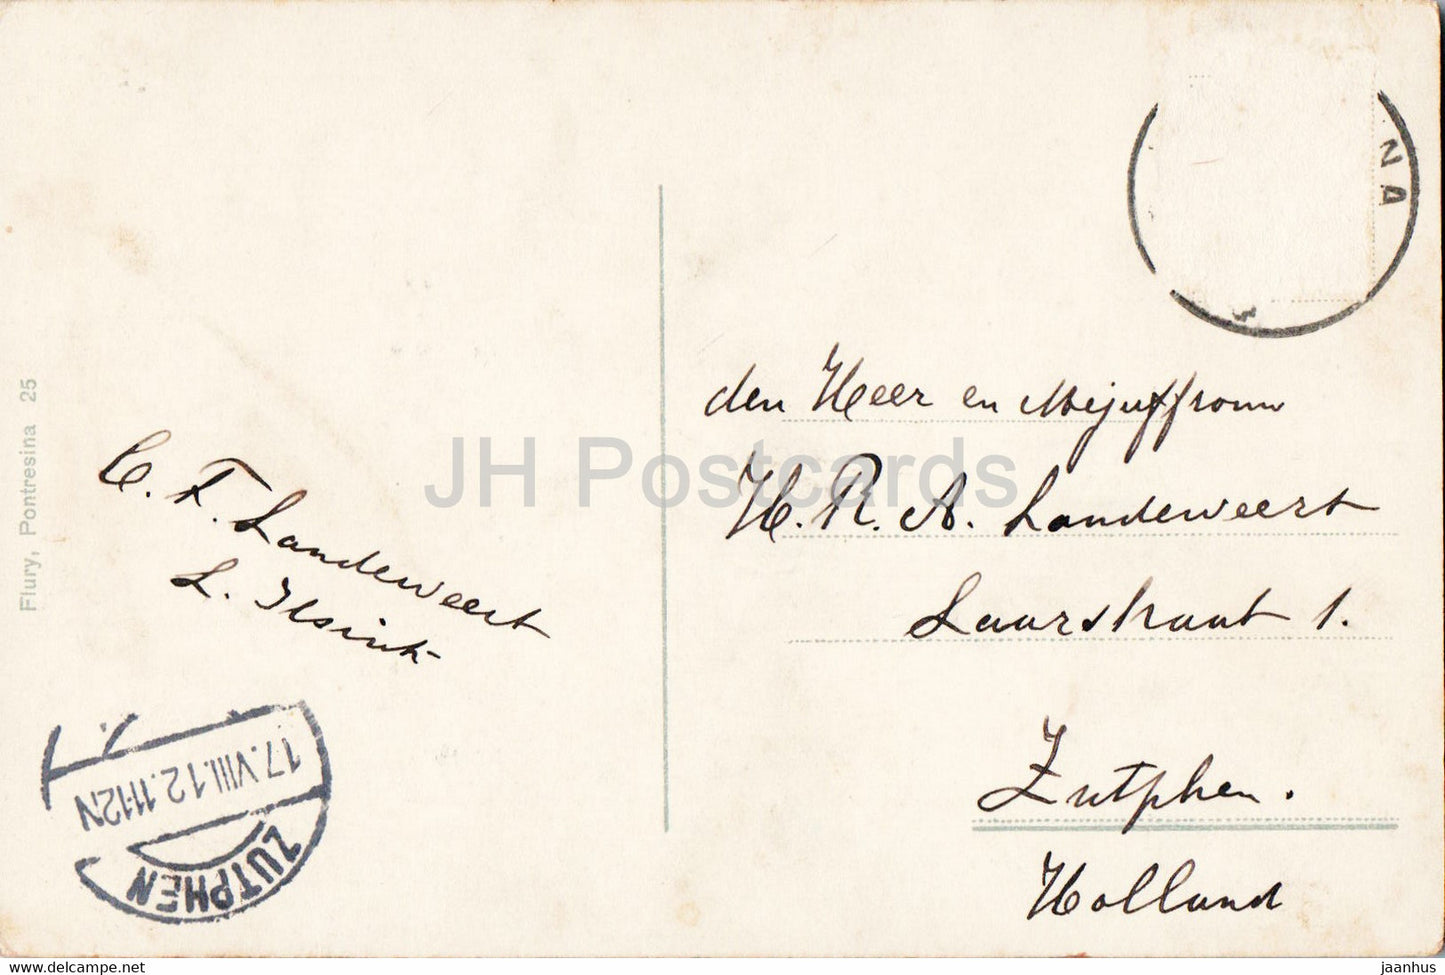 NA
den Heer en Mejuffrouw
H. R. A. Landeweert
Laarstraat 1.
Zutphen.
Holland
C. F. Landeweert
L.
Flury, Pontresina 25
17.VIII.12.11-12N
ZUTPHEN
JH Postcards
www.delcampe.net
jaanhus